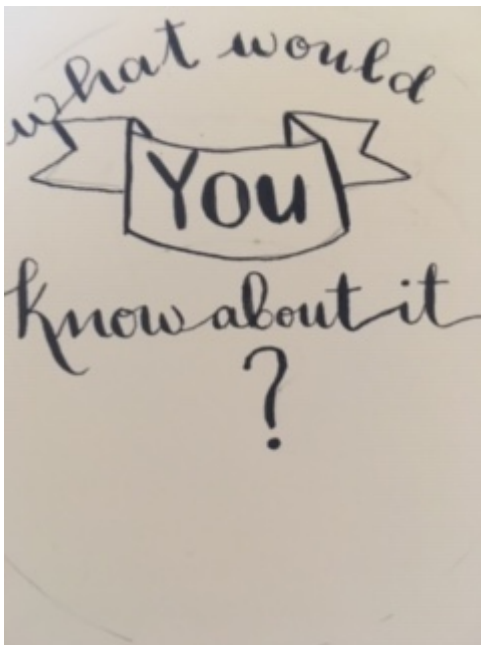 what would
You
know about it
?